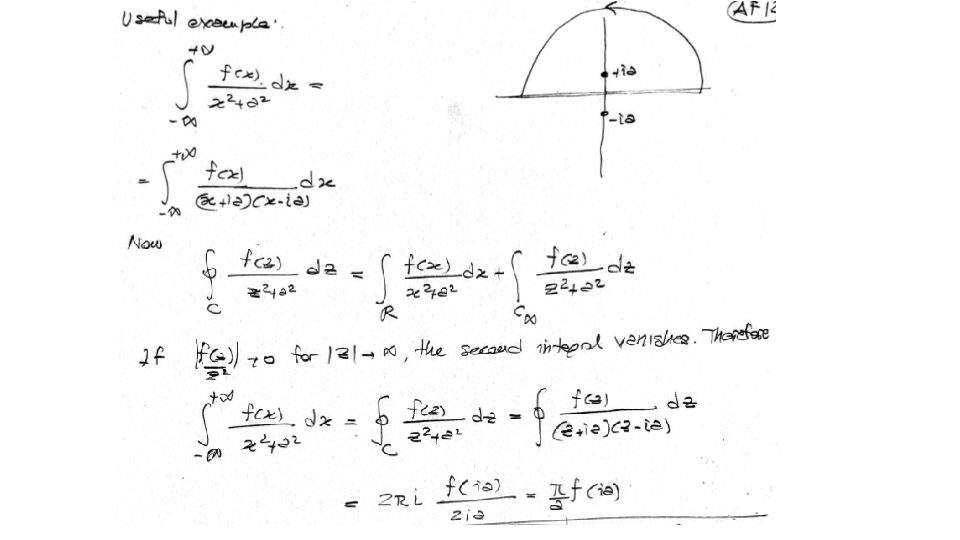 Useful example:
AF12
+ia
-ia
∫_{-∞}^{+∞} f(x)/(x²+a²) dx =
= ∫_{-∞}^{+∞} f(x)/((x+ia)(x-ia)) dx
Now
∮_C f(z)/(z²+a²) dz = ∫_R f(x)/(x²+a²) dx + ∫_{C∞} f(z)/(z²+a²) dz
If |f(z)|/z² → 0 for |z| → ∞, the second integral vanishes. Therefore
∫_{-∞}^{+∞} f(x)/(x²+a²) dx = ∮_C f(z)/(z²+a²) dz = ∮ f(z)/((z+ia)(z-ia)) dz
= 2πi f(ia)/(2ia) = π/a f(ia)